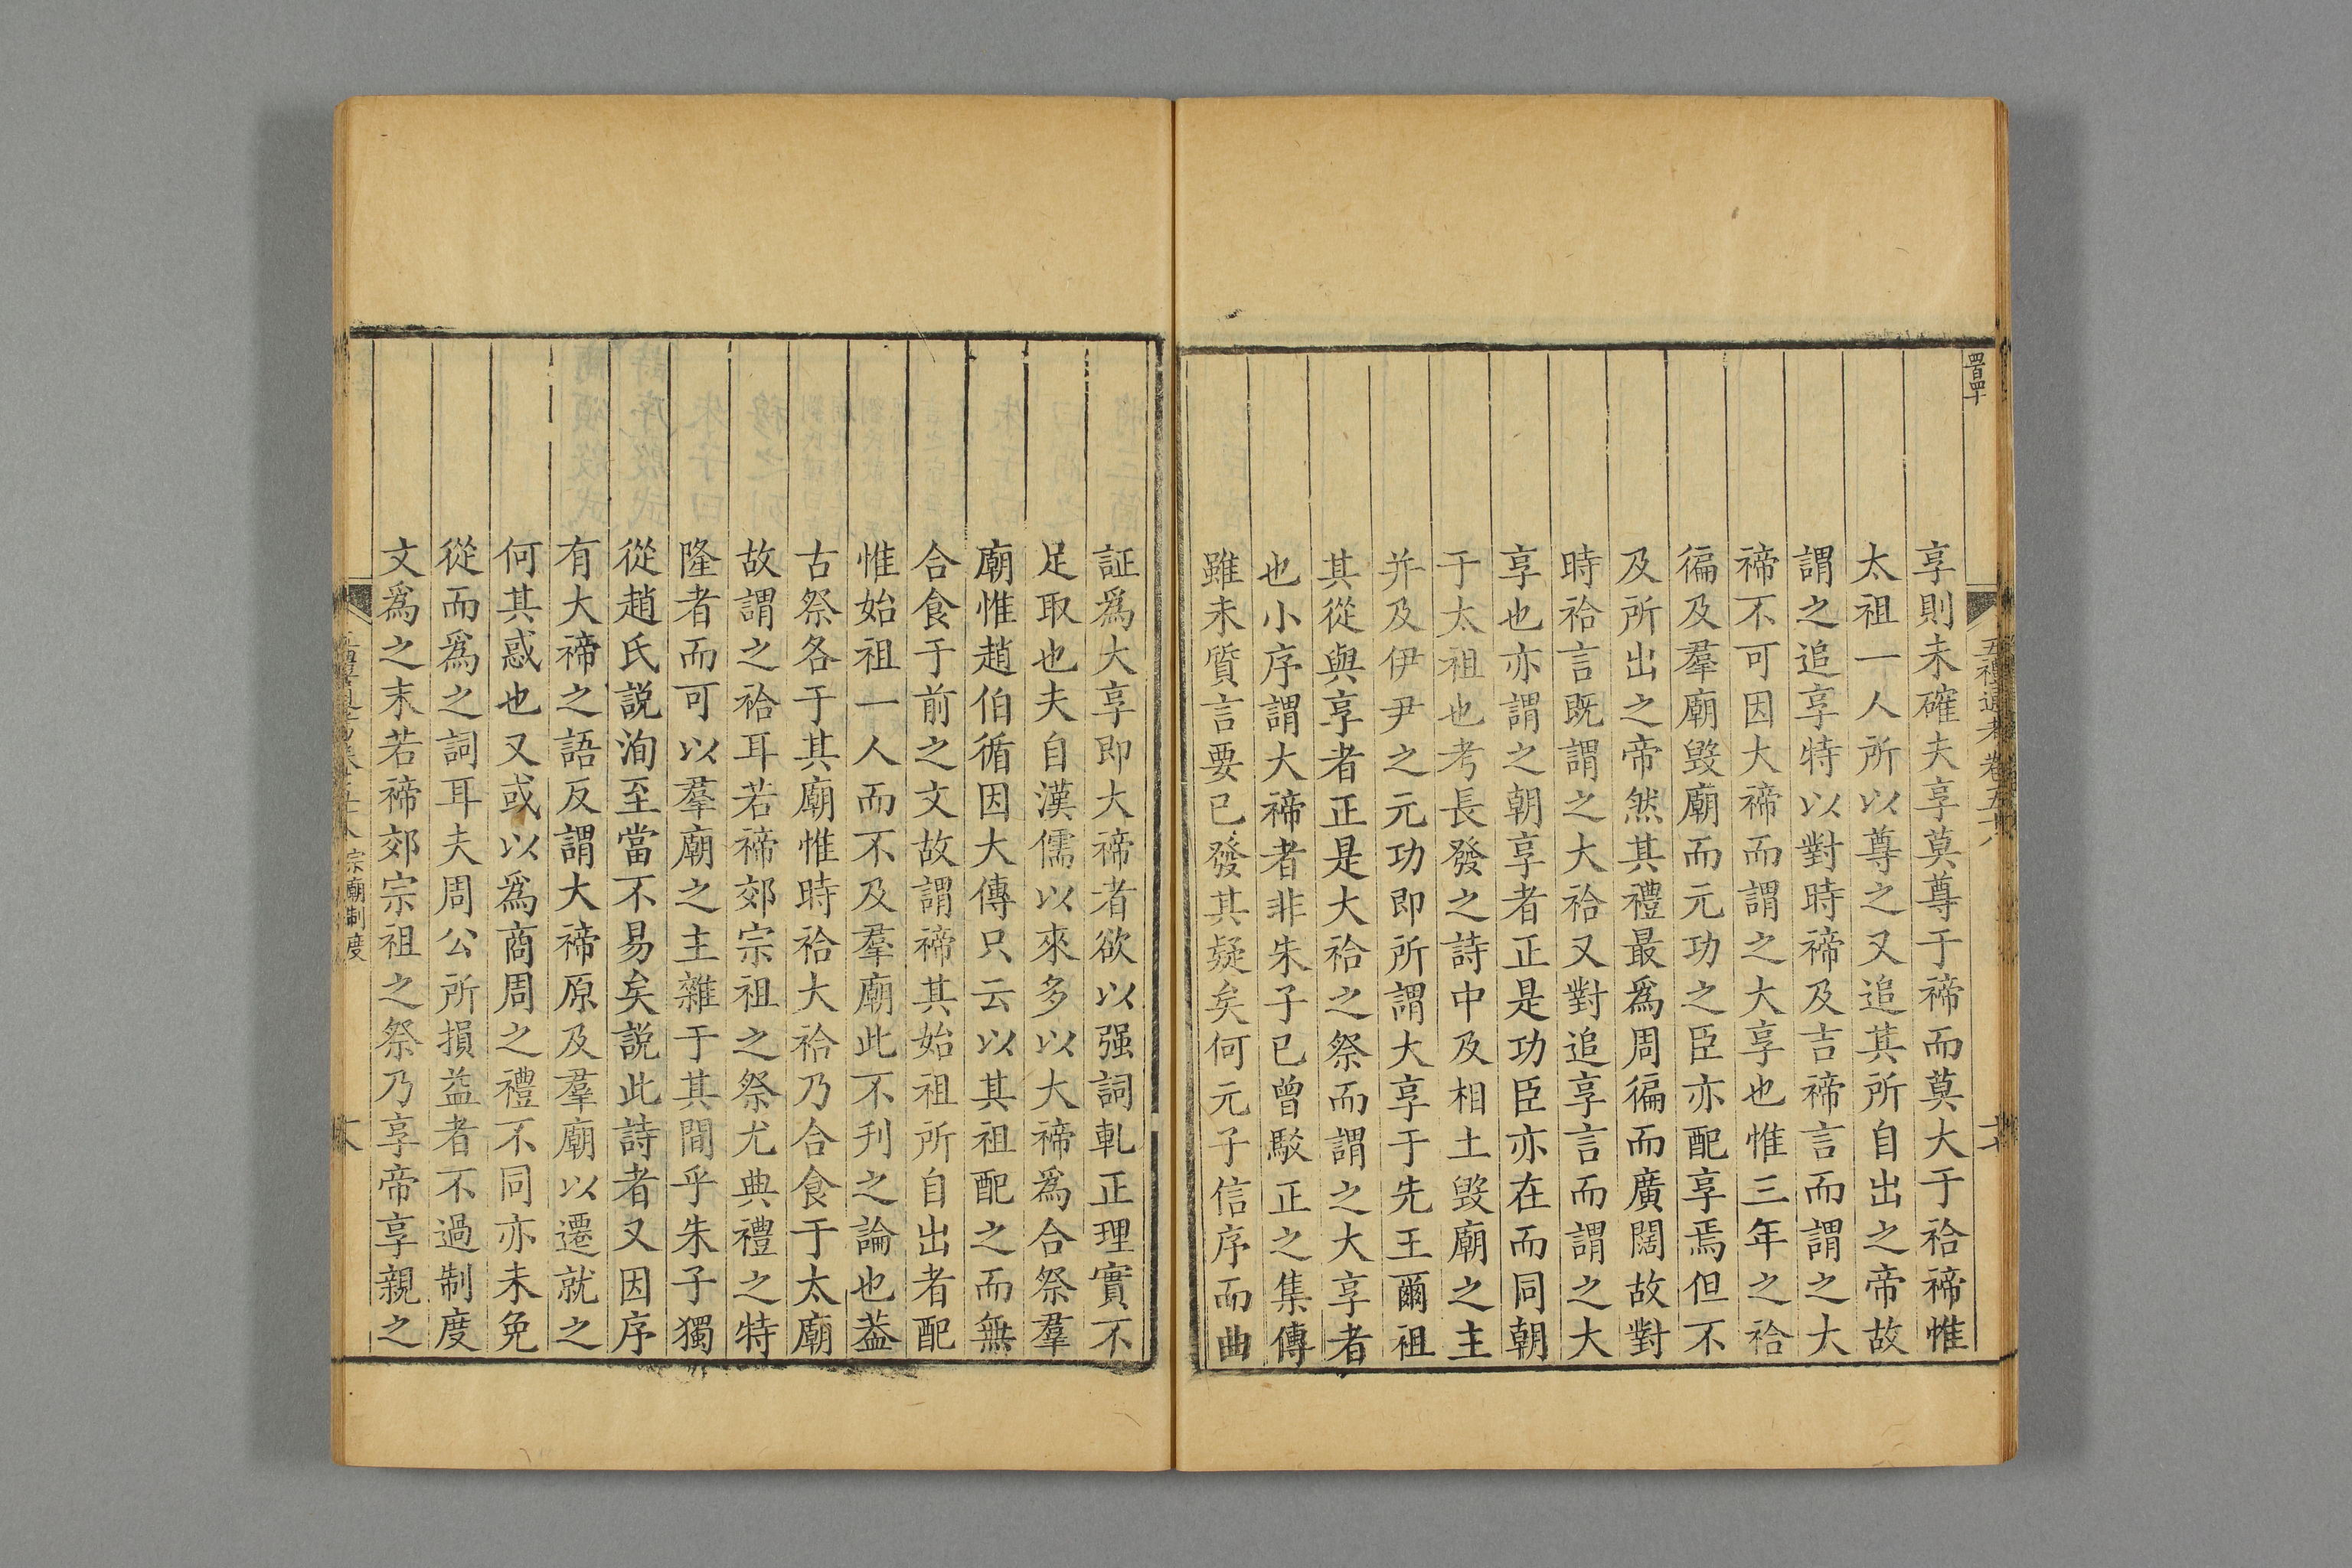 享則未確夫享莫尊于禘而莫大于祫禘惟
太祖一人所以尊之又追其所自出之帝故
謂之追享特以對時禘及吉禘言而謂之大
禘不可因大禘而謂之大享也惟三年之祫
徧及羣廟毀廟而元功之臣亦配享焉但不
及所出之帝然其禮最爲周徧而廣闊故對
時祫言既謂之大祫又對追享言而謂之大
享也亦謂之朝享者正是功臣亦在而同朝
于太祖也考長發之詩中及相土毀廟之主
并及伊尹之元功即所謂大享于先王爾祖
其從與享者正是大祫之祭而謂之大享者
也小序謂大禘者非朱子已曾駁正之集傳
雖未質言要已發其疑矣何元子信序而曲
証爲大享即大禘者欲以强詞軋正理實不
足取也夫自漢儒以來多以大禘爲合祭羣
廟惟趙伯循因大傳只云以其祖配之而無
合食于前之文故謂禘其始祖所自出者配
惟始祖一人而不及羣廟此不刋之論也葢
古祭各于其廟惟時祫大祫乃合食于太廟
故謂之祫耳若禘郊宗祖之祭尤典禮之特
隆者而可以羣廟之主雜于其間乎朱子獨
從趙氏説洵至當不易矣説此詩者又因序
有大禘之語反謂大禘原及羣廟以遷就之
何其惑也又或以爲商周之禮不同亦未免
從而爲之詞耳夫周公所損益者不過制度
文爲之末若禘郊宗祖之祭乃享帝享親之
五禮通考卷五十八
宗廟制度